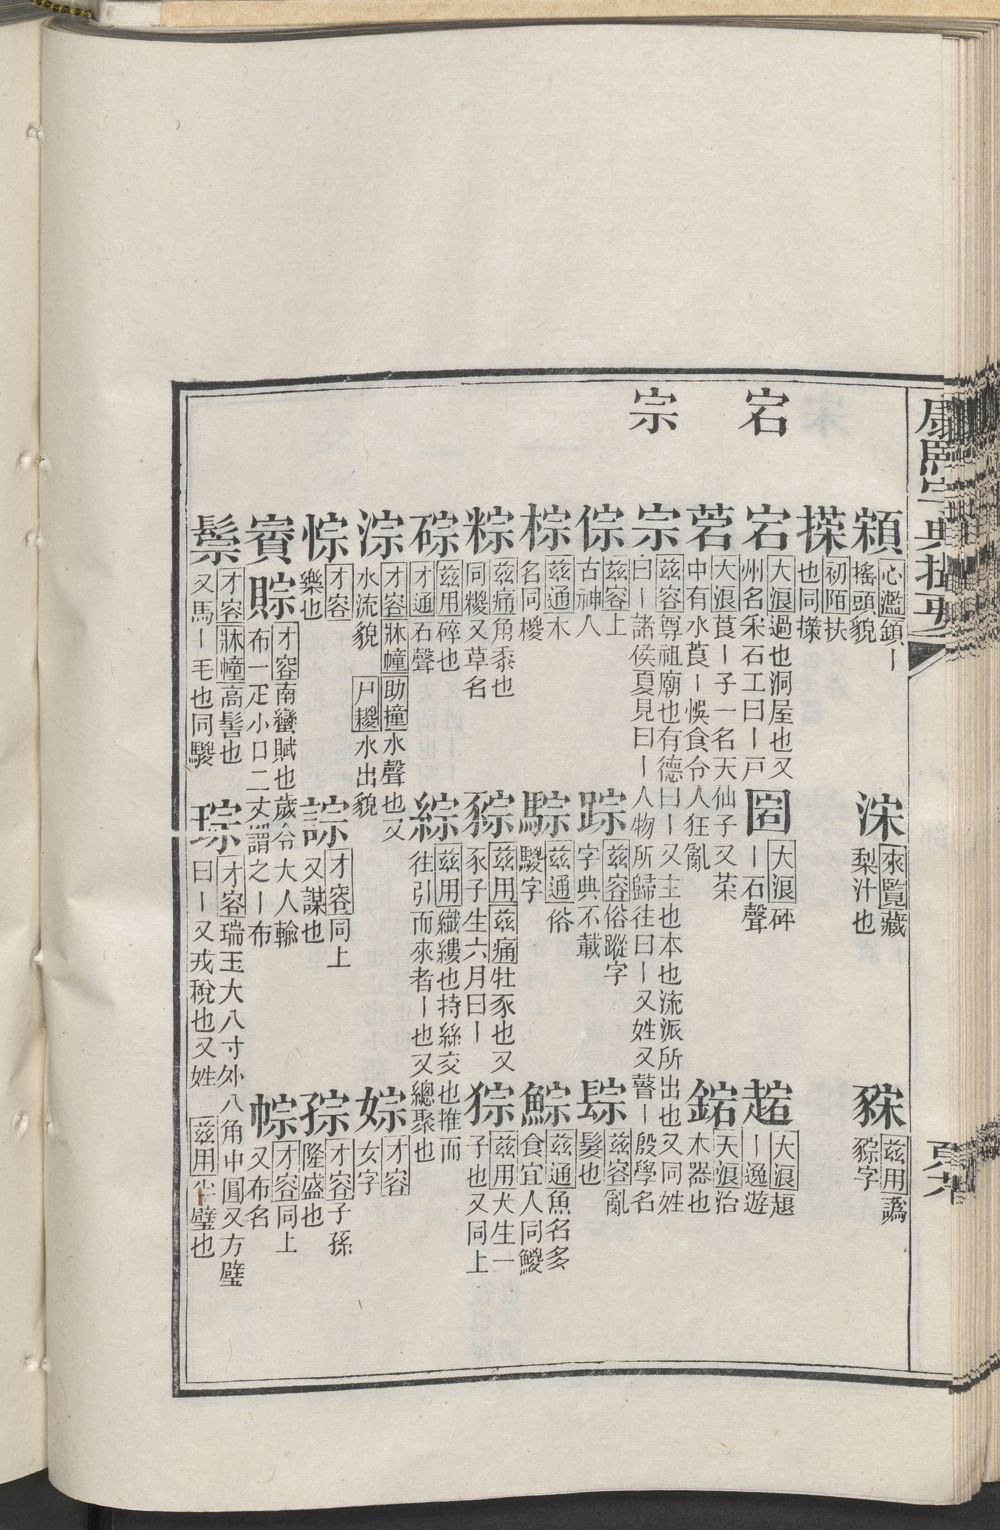 康熙字典撮要
宀九
䫅
心濫顉丨
搖頭貌
㴲
來覧藏
梨汁也
𧲱
茲用譌
䝋字
㮶
初陌扶
也同擈
宕
宕
大浪過也洞屋也又
州名采石工曰丨戸
𡇈
大浪砰
丨石聲
趤
大浪趧
丨逸遊
菪
大浪莨丨子一名天仙子又茶
中有水莨丨悞食令人狂亂
䥯
天浪治
木器也
宗
宗
茲容尊祖廟也有德曰丨又主也本也流派所出也又同姓
曰丨諸侯夏見曰丨人物所歸往曰丨又姓又瞽丨殷學名
倧
茲容上
古神人
踪
茲容俗蹤字
字典不載
䯳
茲容亂
髮也
棕
茲通木
名同椶
騌
茲通俗
騣字
鯮
茲通魚名多
食宜人同鯼
粽
茲痛角黍也
同糉又草名
䝋
茲用茲痛牡豕也又
豕子生六月曰丨
猔
茲用犬生一
子也又同上
碂
茲用碎也
才通石聲
綜
茲用織縷也持絲交也推而
往引而來者丨也又總聚也
淙
才容牀幢助撞水聲也又
水流貌尸糭水出貌
婃
才容
女字
悰
才容
樂也
誴
才容同上
又謀也
孮
才容子孫
隆盛也
賨賩
才容南蠻賦也歲令大人輸
布一疋小口二丈謂之丨布
㡁
才容同上
又布名
鬃
才容牀幢高髻也
又馬丨毛也同騣
琮
才容瑞玉大八寸外八角中圓又方璧
曰丨又戎稅也又姓茲用半璧也